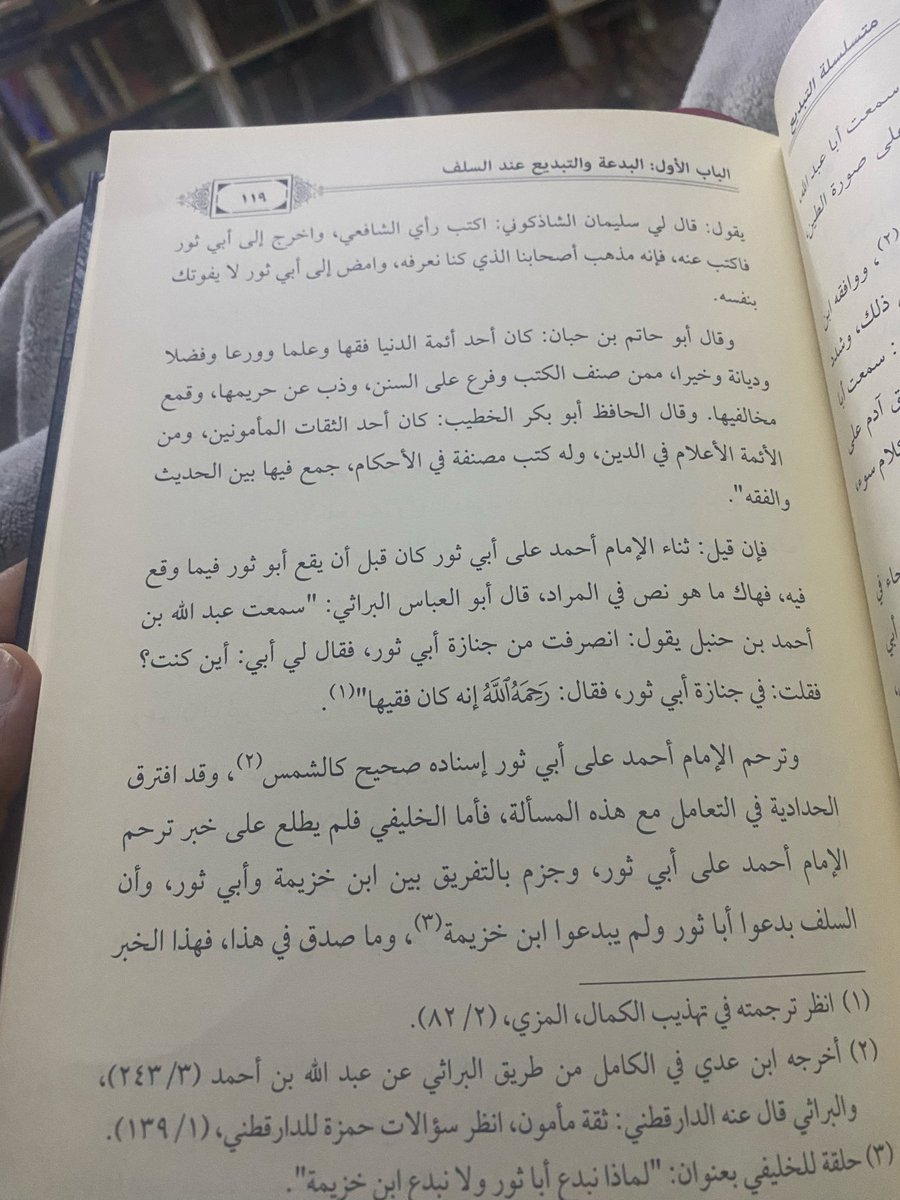 الباب الأول: البدعة والتبديع عند السلف
١١٩
يقول: قال لي سليمان الشاذكوني: اكتب رأي الشافعي، واخرج إلى أبي ثور
فاكتب عنه، فإنه مذهب أصحابنا الذي كنا نعرفه، وامض إلى أبي ثور لا يفوتك
بنفسه.
وقال أبو حاتم بن حبان: كان أحد أئمة الدنيا فقها وعلما وورعا وفضلا
وديانة وخيرا، ممن صنف الكتب وفرع على السنن، وذب عن حريمها، وقمع
مخالفيها. وقال الحافظ أبو بكر الخطيب: كان أحد الثقات المأمونين، ومن
الأئمة الأعلام في الدين، وله كتب مصنفة في الأحكام، جمع فيها بين الحديث
والفقه".
فإن قيل: ثناء الإمام أحمد على أبي ثور كان قبل أن يقع أبو ثور فيما وقع
فيه، فهاك ما هو نص في المراد، قال أبو العباس البراثي: "سمعت عبد الله بن
أحمد بن حنبل يقول: انصرفت من جنازة أبي ثور، فقال لي أبي: أين كنت؟
فقلت: في جنازة أبي ثور، فقال: رَحِمَهُ ٱللَّهُ إنه كان فقيها"(١).
وترحم الإمام أحمد على أبي ثور إسناده صحيح كالشمس(٢)، وقد افترق
الحدادية في التعامل مع هذه المسألة، فأما الخليفي فلم يطلع على خبر ترحم
الإمام أحمد على أبي ثور، وجزم بالتفريق بين ابن خزيمة وأبي ثور، وأن
السلف بدعوا أبا ثور ولم يبدعوا ابن خزيمة(٣)، وما صدق في هذا، فهذا الخبر
(١) انظر ترجمته في تهذيب الكمال، المزي، (٢/ ٨٢).
(٢) أخرجه ابن عدي في الكامل من طريق البراثي عن عبد الله بن أحمد (٣/ ٢٤٣)،
والبراثي قال عنه الدارقطني: ثقة مأمون، انظر سؤالات حمزة للدارقطني، (١/ ١٣٩).
(٣) حلقة للخليفي بعنوان: "لماذا نبدع أبا ثور ولا نبدع ابن خزيمة".
متسلسلة التبديع
سمعت أبا عبد الله،
على صورة الطين
(٢)، ووافقه ابن
ذلك، وشدد
: سمعت أبا
ق آدم على
كلام سوء،
جاء في
أبي